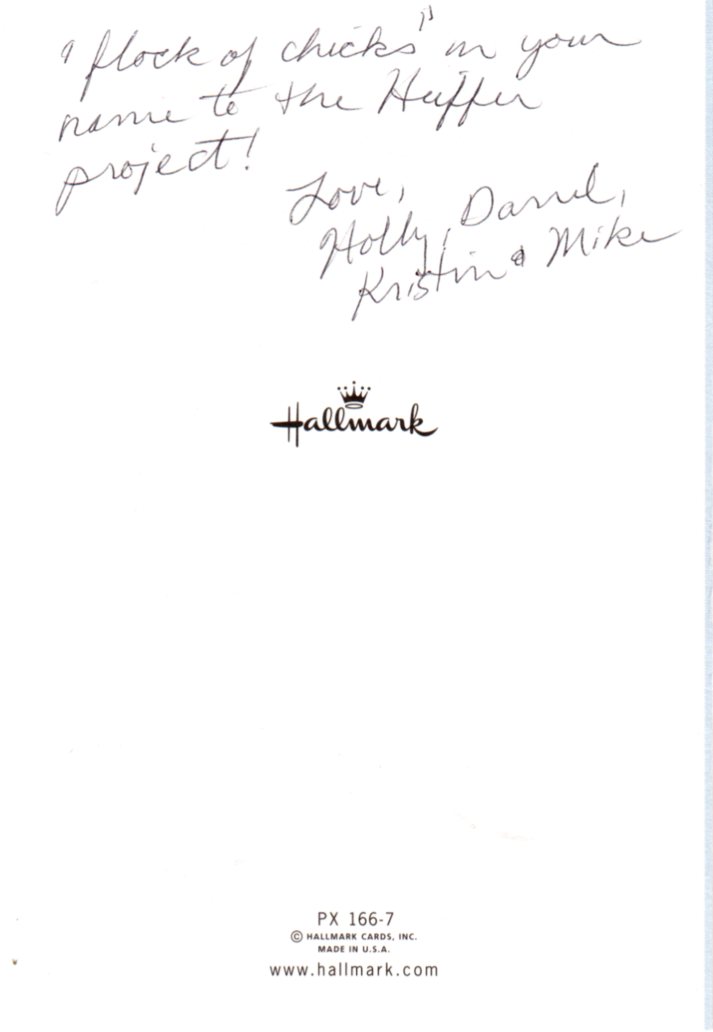 "flock of chicks" in your
name to the Heiffer
project!
Love,
Holly, Darrel,
Kristin & Mike
Hallmark
PX 166-7
© HALLMARK CARDS, INC.
MADE IN U.S.A.
www.hallmark.com